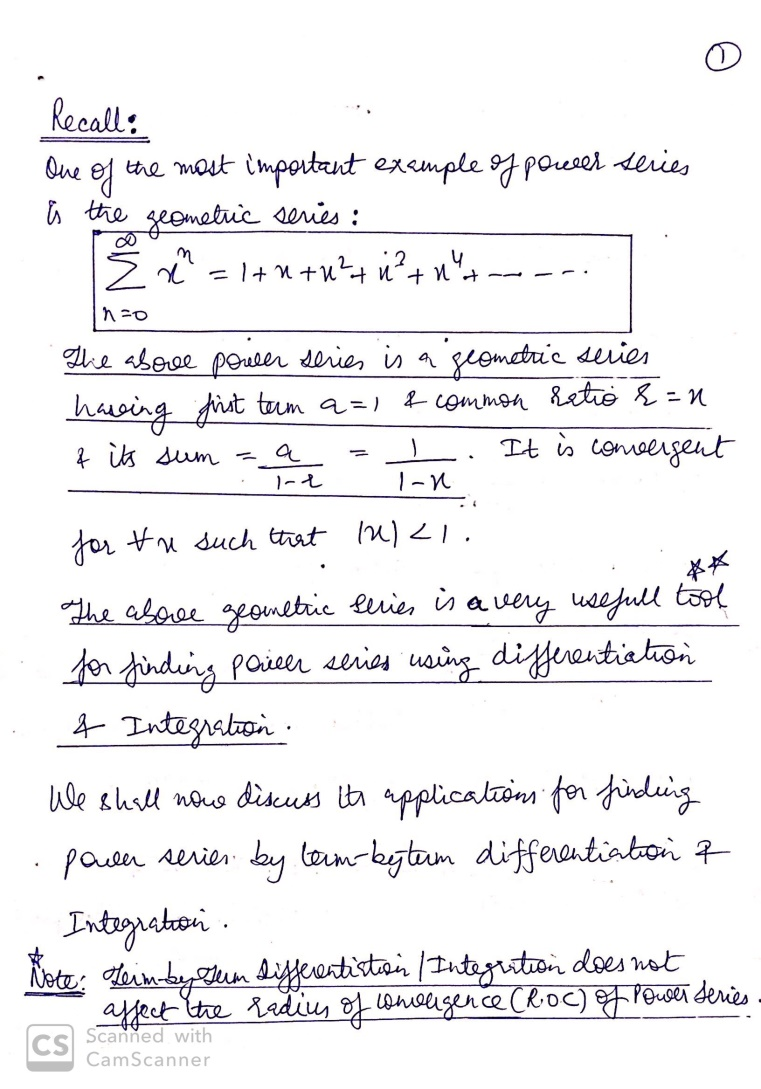 ①
Recall:
One of the most important example of power series
is the geometric series:
∞
∑ xⁿ = 1 + x + x² + x³ + x⁴ + — – – ·
n=0
The above power series is a geometric series
having first term a=1 & common ratio r = x
& its sum = a/1-r = 1/1-x . It is convergent
for ∀x such that |x| < 1 .
**
The above geometric series is a very usefull tool
for finding power series using differentiation
& Integration .
We shall now discuss its applications for finding
power series by term-by term differentiation &
Integration .
*
Note: Term-by-Term Differentiation / Integration does not
affect the radius of convergence (R.O.C) of Power Series .
CS Scanned with
CamScanner